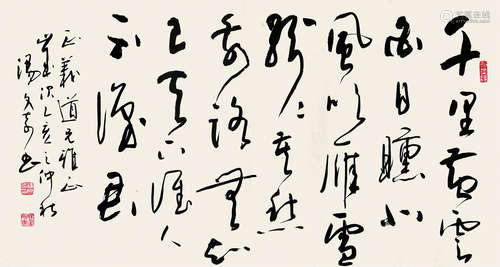 千里黄雲
白日曛北
風吹雁雪
紛紛莫愁
前路無知
己天下誰人
不識君
正義道兄雅正
歲次乙亥之仲秋
湯文選書